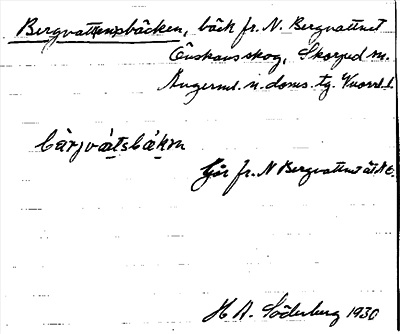 Bergvattensbäcken, bäck fr. N. Bergvattnet
Önskans skog, Skorped sn.
Ångerml. n. doms. tg. Vnorrl. l.
bàrjvátsbákm
Går fr. N Bergvattnet åt N Ö.
H A. Söderberg 1930